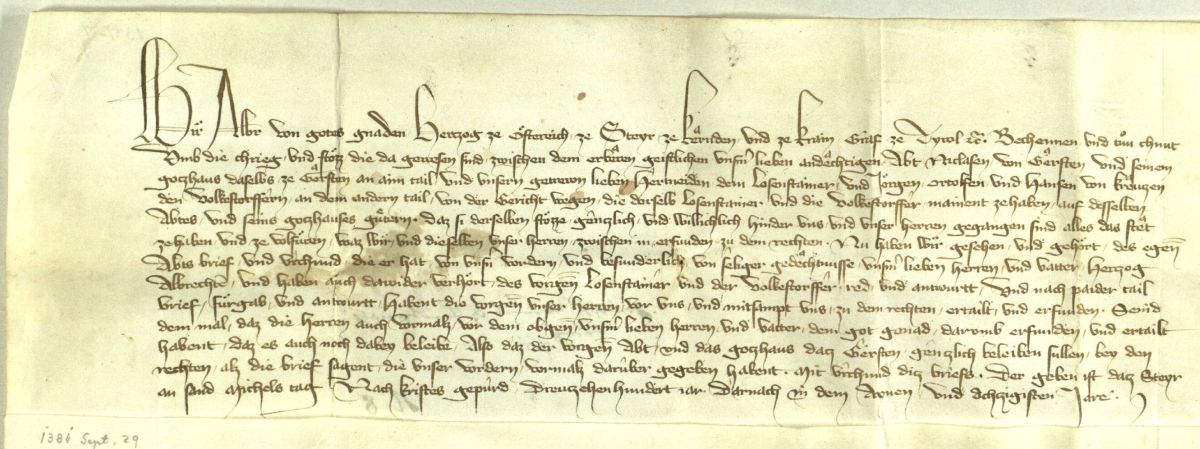 Wir Albr von gotes gnaden Herczog ze Österreich ze Steyr ze Kernden und ze Krain Graf ze Tyrol etc. Bechennen und tun chunt
Umb die chrieg und stözz die da gewesen sind zwischen dem erbern geistlichen unserm lieben andechtigen Abt Niclasen von Gersten und seinem
gotzhaus daselbs ze Gersten an aim tail, und unsern getrewn lieben Hertneiden dem Losenstainer, und Jörgen, Ortolfen und Hansen von Kreuzen
den Volkestorffern, an dem andern tail, von der Gericht wegen, die derselb Losenstainer, und die Volkestorffer mainent ze haben, auf desselben
Abtes, und seins gotzhauses gütern. Daz si derselben stözze genczlich und willichlich hinder uns und unser herren gegangen sind alles das stet
ze haben und ze volfüren, waz wir, und dieselben unser herren, zwischen in erfunden zu dem rechten. Nu haben wir gesehen, und gehört, des egen
Abts brief, und urchund, die er hat von unsern vordern, und besunderlich von seliger gedechtnisse unserm lieben herren, und vatter, Herczog
Albrechten, und haben auch dawider verhört, des vorgen Losenstainer und der Volkestorffer, red, und antwurtt, Und nach paider tail
brief, fürgab, und antwurtt, Habent die vorgen unser herren, vor uns, und mitsampt uns, zu dem rechten, ertailt, und erfunden. Seind
dem mal, daz die herren auch vormalz, vor dem obgen unserm lieben herren, und vatter, dem got genad, darumb erfunden, und ertailt
habent, daz es auch noch dabey beleibe, Also daz der vorgen Abt, und das gotzhaus datz Gersten, genczlich beleiben sullen, bey den
rechten, alz die brief sagent, die unser vordern, vormalz darüber gegeben habent. Mit urchund ditz briefs. Der geben ist datz Steyr
an sand Michels tag Nach Kristes gepürd Dreuzehenhundert iar Darnach in dem Ainen und Achzigisten Jare.
1381 Sept. 29